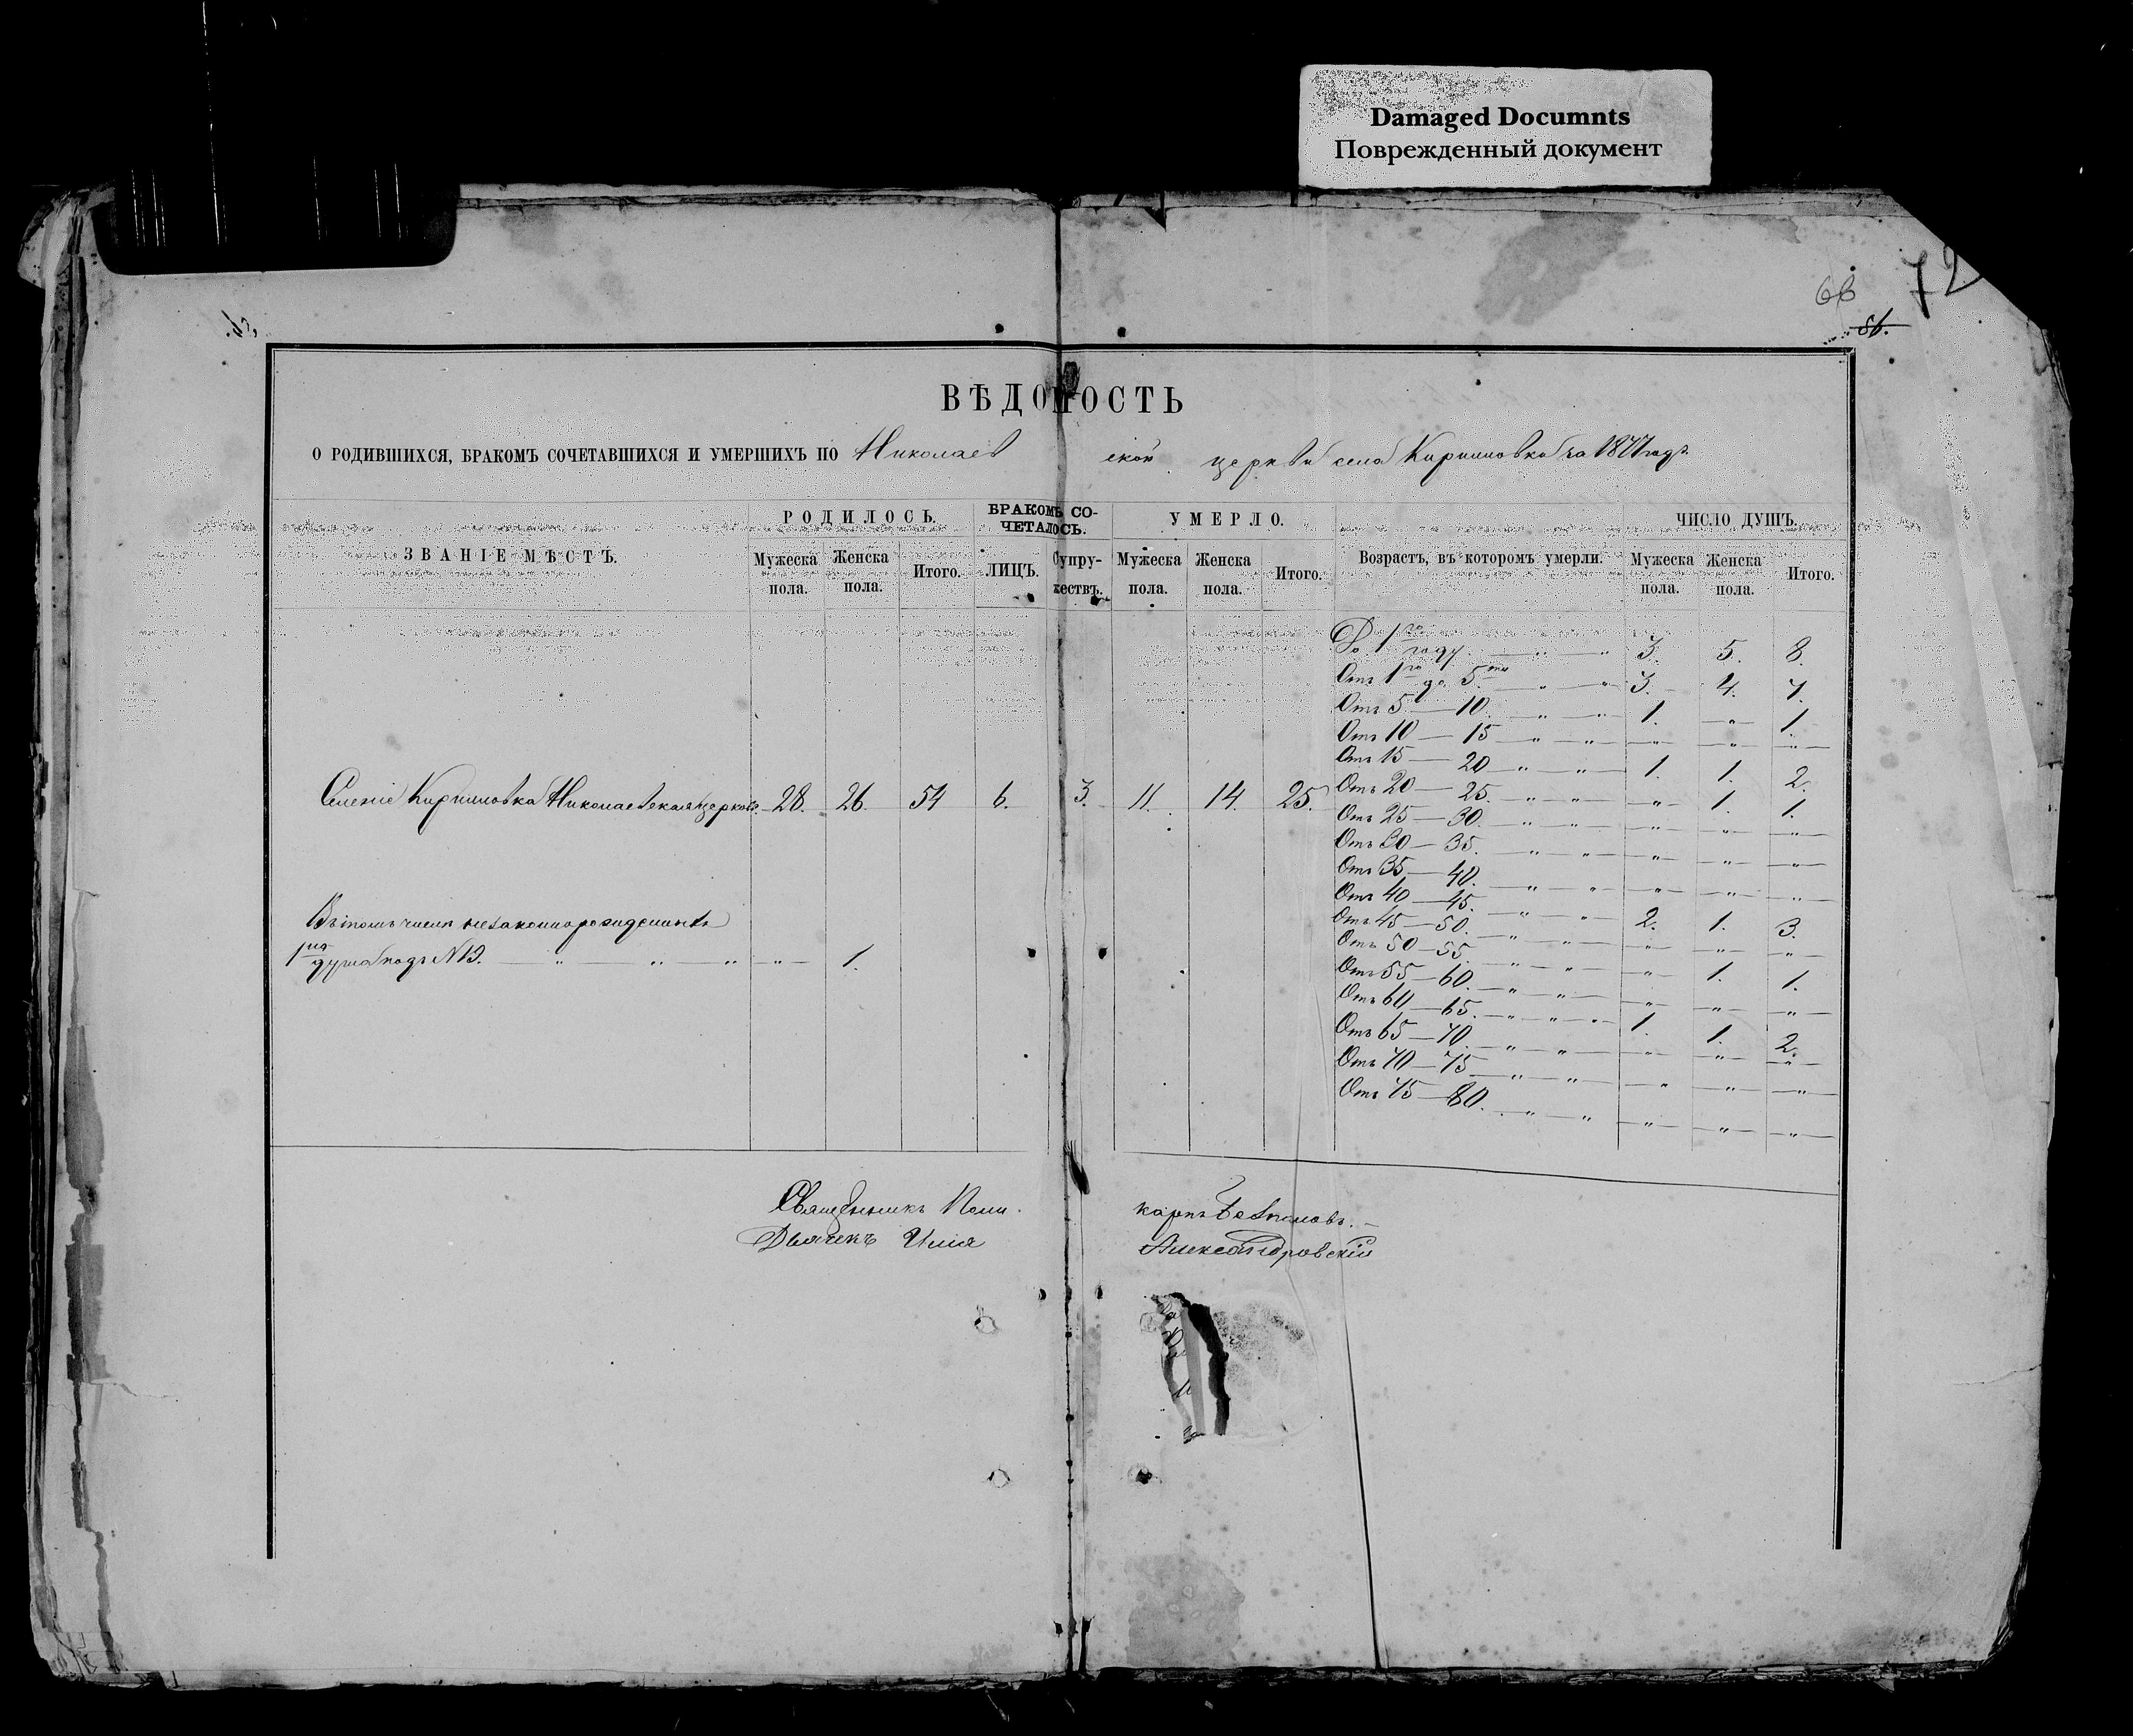 Damaged Documnts
Поврежденный документ
72
66
86.
ВѢДОМОСТЬ
О РОДИВШИХСЯ, БРАКОМЪ СОЧЕТАВШИХСЯ И УМЕРШИХЪ ПО Николаевской церкви села Кирпиловка за 1877 годъ
ЗВАНІЕ МѢСТЪ. РОДИЛОСЬ. БРАКОМЪ СОЧЕТАЛОСЬ. УМЕРЛО. Возрастъ, въ которомъ умерли. ЧИСЛО ДУШЪ.
Мужеска пола. Женска пола. Итого. ЛИЦЪ. Супружествъ. Мужеска пола. Женска пола. Итого. Мужеска пола. Женска пола. Итого.
До 1го году — " — " 3. 5. 8.
Отъ 1го до 5ти — " — " 3. 4. 7.
Отъ 5 — 10. — " — " 1. — " — 1.
Отъ 10 — 15 — " — " — " — " — " —
Отъ 15 — 20 — " — " — 1. 1. 2.
Селеніе Кирпиловка Николаевская церковь. 28. 26. 54 6. 3. 11. 14. 25.
Отъ 20 — 25. — " — " — " — 1. 1.
Отъ 25 — 30. — " — " — " — " — " —
Отъ 30 — 35. — " — " — " — " — " —
Отъ 35 — 40. — " — " — " — " — " —
Отъ 40 — 45. — " — " 2. 1. 3.
Въ томъ числѣ незаконнорожденныхъ
Отъ 45 — 50. — " — " — " — " — " —
Отъ 50 — 55. — " — " — " — 1. 1.
1на душа подъ №13. — " — " — " — " — 1.
Отъ 55 — 60. — " — " — " — " — " —
Отъ 60 — 65. — " — " — " 1. 1. 2.
Отъ 65 — 70. — " — " — " — " — " —
Отъ 70 — 75 — " — " — " — " — " —
Отъ 75 — 80. — " — " — " — " — " —
Священникъ Поликарпъ
Дьячекъ Илія Александровскій